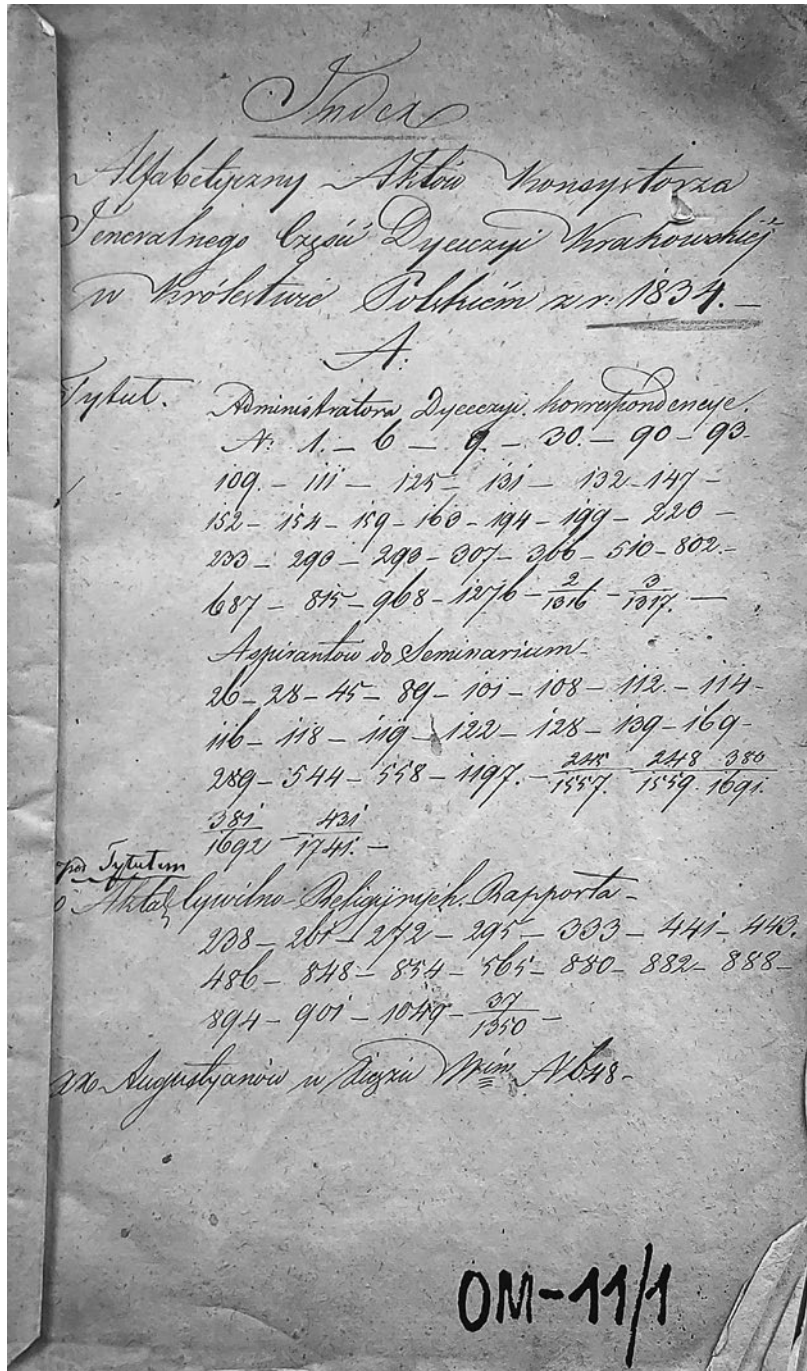 Index
Alfabetyczny Aktów Konsystorza
Jeneralnego Część Dyecezyi Krakowskiéj
w Królestwie Polskiém z r: 1834. –
A.
Tytuł. Administratora Dyecezyi korrespondencye.
N: 1. – 6 – 9. – 30. – 90 – 93 –
109. – 111 – 125 – 131 – 132 – 147 –
152 – 154 – 159 – 163 – 194 – 199 – 220 –
233 – 290 – 293 – 307 – 366 – 510 – 802. –
687 – 815 – 968 – 1276 – 2/1316 – 3/1317. –
Aspirantów do Seminarium –
26 – 28 – 45 – 89 – 101 – 108 – 112. – 114 –
116 – 118 – 119 – 122 – 128 – 139 – 169 –
289 – 544 – 558 – 1197. – 245/1557. 248/1559. 380/1691.
381/1692 – 431/1741. –
pod Tytułem
o Aktach Cywilno-Religijnych Rapporta –
238 – 261 – 272 – 295 – 333 – 441 – 443.
486 – 848 – 854 – 565 – 880 – 882 – 888 –
894 – 901 – 1049 – 37/1350 –
XX Augustyanów w N 648 –
OM-11/1